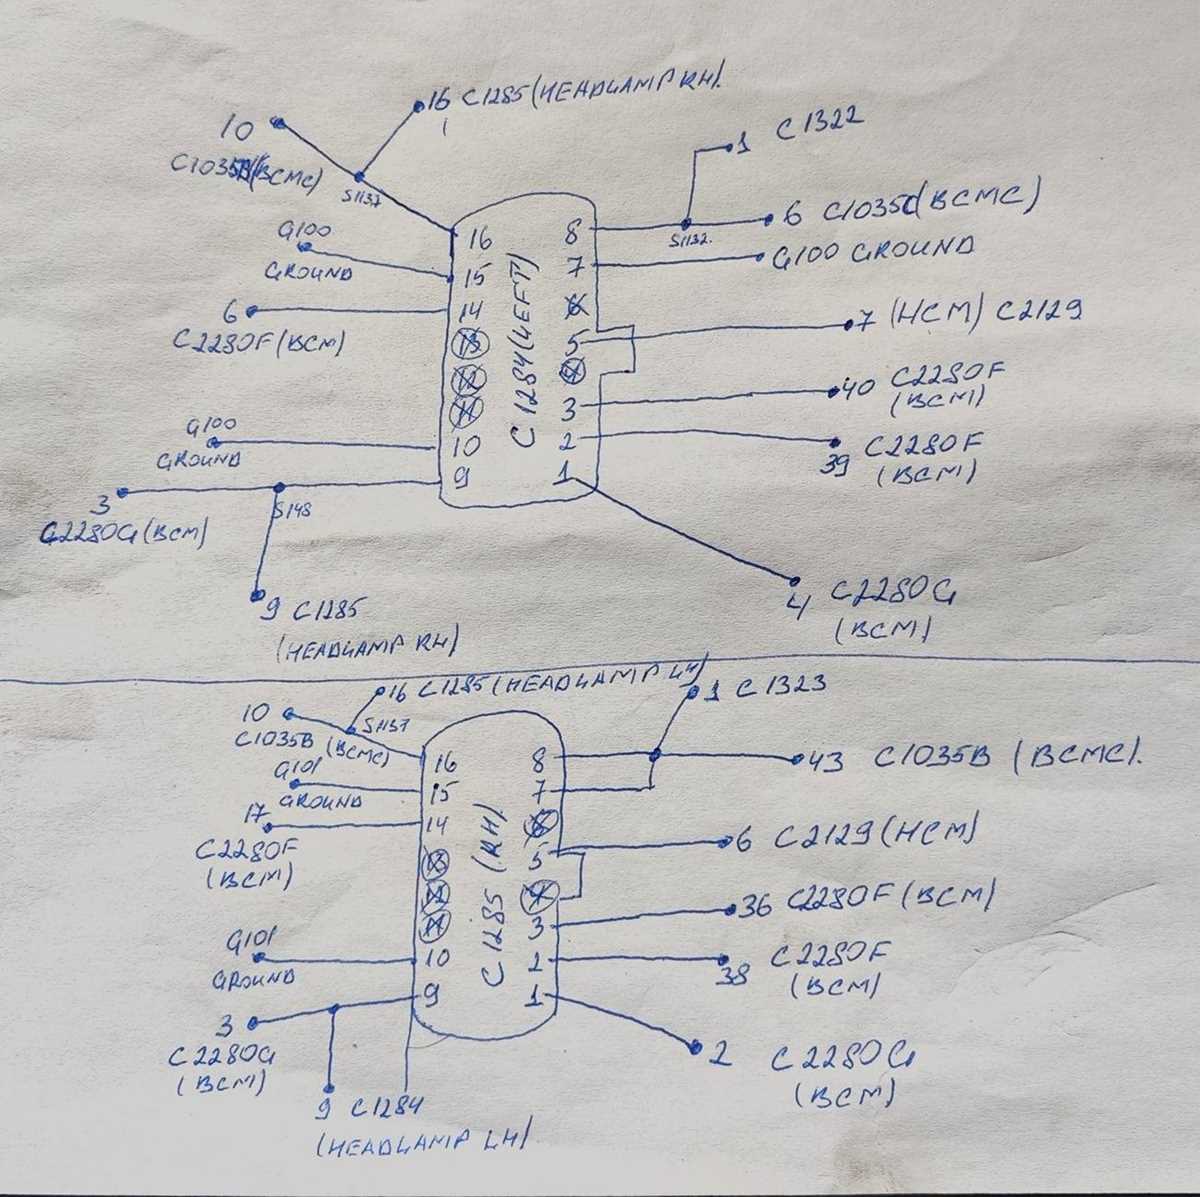 16 C1285 (HEADLAMP RH).
10
C1035B (BCMC)
S1137
1 C1322
6 C1035C (BCMC)
S1132.
G100
GROUND
G100 GROUND
6
C2280F (BCM)
7 (HCM) C2129
40 C2280F
(BCM)
G100
GROUND
39 C2280F
(BCM)
3
C2280G (BCM)
S148
9 C1285
(HEADLAMP RH)
4 C2280G
(BCM)
C1284 (LEFT)
16 8
15 7
14 6
13 5
12 4
11 3
10 2
9 1
16 C1285 (HEADLAMP LH)
10
C1035B (BCMC)
S1137
1 C1323
43 C1035B (BCMC).
G101
GROUND
17
C2280F
(BCM)
6 C2129 (HCM)
36 C2280F (BCM)
G101
GROUND
38 C2280F
(BCM)
3
C2280G
(BCM)
9 C1284
(HEADLAMP LH).
2 C2280G
(BCM)
C1285 (RH).
16 8
15 7
14 6
13 5
12 4
11 3
10 2
9 1